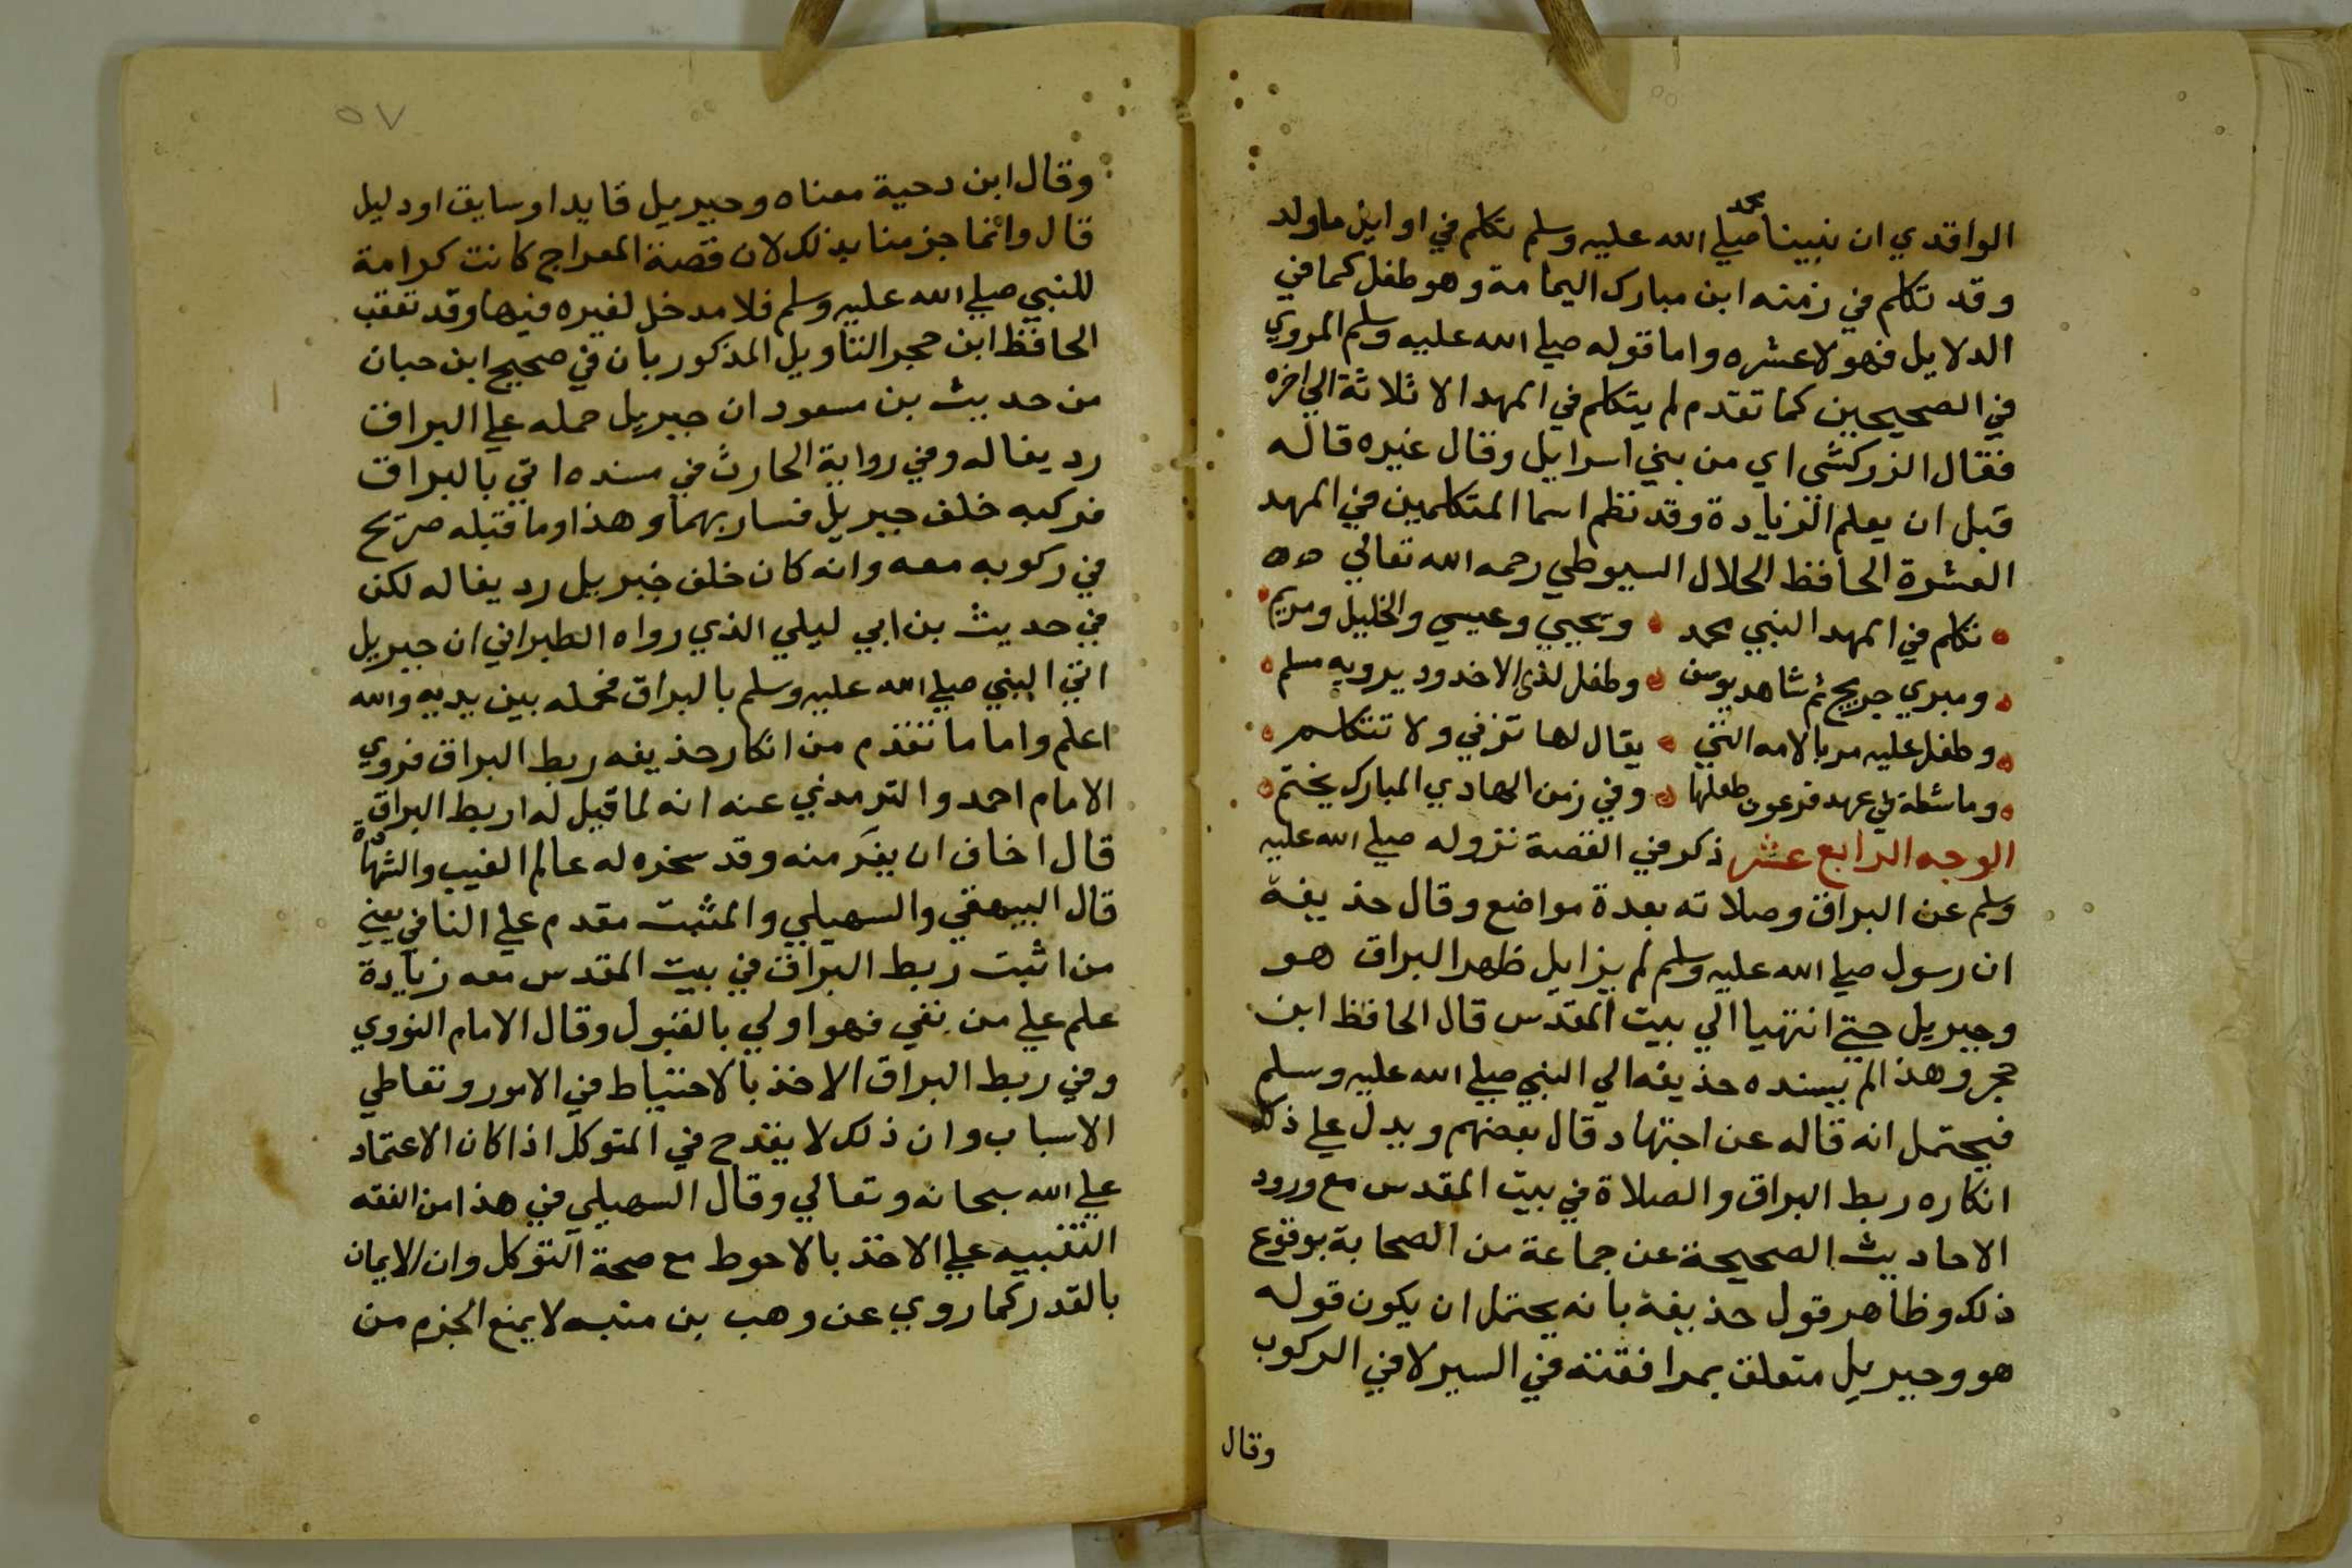 الواقدي ان نبينا محمد صلي الله عليه وسلم تكلم في اوايل ماولد
وقد تكلم في زمنه ابن مبارك اليمامة وهو طفل كما في
الدلايل فهولا عشره واما قوله صلي الله عليه وسلم المروي
في الصحيحين كما تقدم لم يتكلم في المهد الا ثلاثة الي اخره
فقال الزركشي اي من بني اسرايل وقال غيره قاله
قبل ان يعلم الزيادة وقد نظم اسما المتكلمين في المهد
العشرة الحافظ الجلال السيوطي رحمه الله تعالي ه ه
تكلم في المهد النبي محمد ويحيي وعيسي والخليل ومريم
ومبري جريج ثم شاهد يوسف وطفل لذي الاخدود يرويه مسلم
وطفل عليه مر بالامه التي يقال لها تزني ولا تتكلم
وماشطة في عهد فرعون طفلها وفي زمن الهادي المبارك يختم
الوجه الرابع عشر ذكر في القصة نزوله صلي الله عليه
وسلم عن البراق وصلاته بعدة مواضع وقال حذيفة
ان رسول صلي الله عليه وسلم لم يزايل ظهر البراق هو
وجبريل حتي انتهيا الي بيت المقدس قال الحافظ ابن
حجر وهذا لم يسنده حذيفه الي النبي صلي الله عليه وسلم
فيحتمل انه قاله عن اجتهاد قال بعضهم ويدل علي ذلك
انكاره ربط البراق والصلاة في بيت المقدس مع ورود
الاحاديث الصحيحة عن جماعة من الصحابة بوقوع
ذلك وظاهر قول حذيفة بانه يحتمل ان يكون قوله
هو وجبريل متعلق بمرافقته في السير لا في الركوب
وقال
٥٧
وقال ابن دحية معناه وجبريل قايدا وسايق اودليل
قال وانما جزمنا بذلك لان قصة المعراج كانت كرامة
للنبي صلي الله عليه وسلم فلا مدخل لغيره فيها وقد تعقب
الحافظ ابن حجر التاويل المذكور بان في صحيح ابن حبان
من حديث بن مسعود ان جبريل حمله علي البراق
رديفا له وفي رواية الحارث في مسنده اتي بالبراق
فركبه خلف جبريل فسار بهما وهذا وما قبله صريح
في ركوبه معه وانه كان خلف جبريل رديفا له لكن
في حديث بن ابي ليلي الذي رواه الطبراني ان جبريل
اتي النبي صلي الله عليه وسلم بالبراق فحمله بين يديه والله
اعلم واما ما تقدم من انكار حذيفه ربط البراق فروي
الامام احمد والترمدي عنه انه لما قيل له اربط البراق
قال اخاف ان يفر منه وقد سخره له عالم الغيب والشهادة
قال البيهقي والسهيلي والمثبت مقدم علي النافي يعني
من اثبت ربط البراق في بيت المقدس معه زيادة
علم علي من نفي فهو اولي بالقبول وقال الامام النووي
وفي ربط البراق الاخذ بالاحتياط في الامور وتعاطي
الاسباب وان ذلك لا يقدح في المتوكل اذا كان الاعتماد
علي الله سبحانه وتعالي وقال السهيلي في هذا من الفقه
التنبيه علي الاخذ بالاحوط مع صحة التوكل وان الايمان
بالقدر كما روي عن وهب بن منبه لا يمنع الجزم من